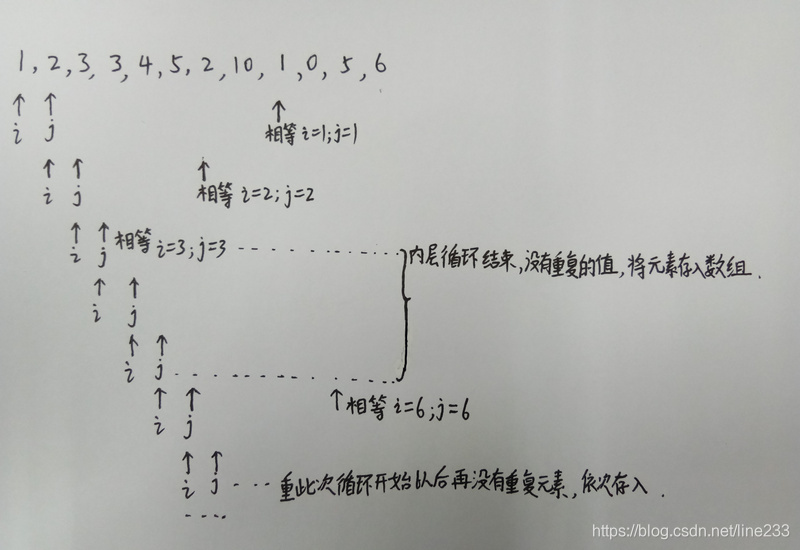 1, 2, 3, 3, 4, 5, 2, 10, 1, 0, 5, 6
i j
相等 i=1; j=1
i j
相等 i=2; j=2
i j 相等 i=3; j=3
内层循环结束,没有重复的值,将元素存入数组.
i j
i j
相等 i=6; j=6
i j
i j
重此次循环开始以后再没有重复元素,依次存入.
https://blog.csdn.net/line233